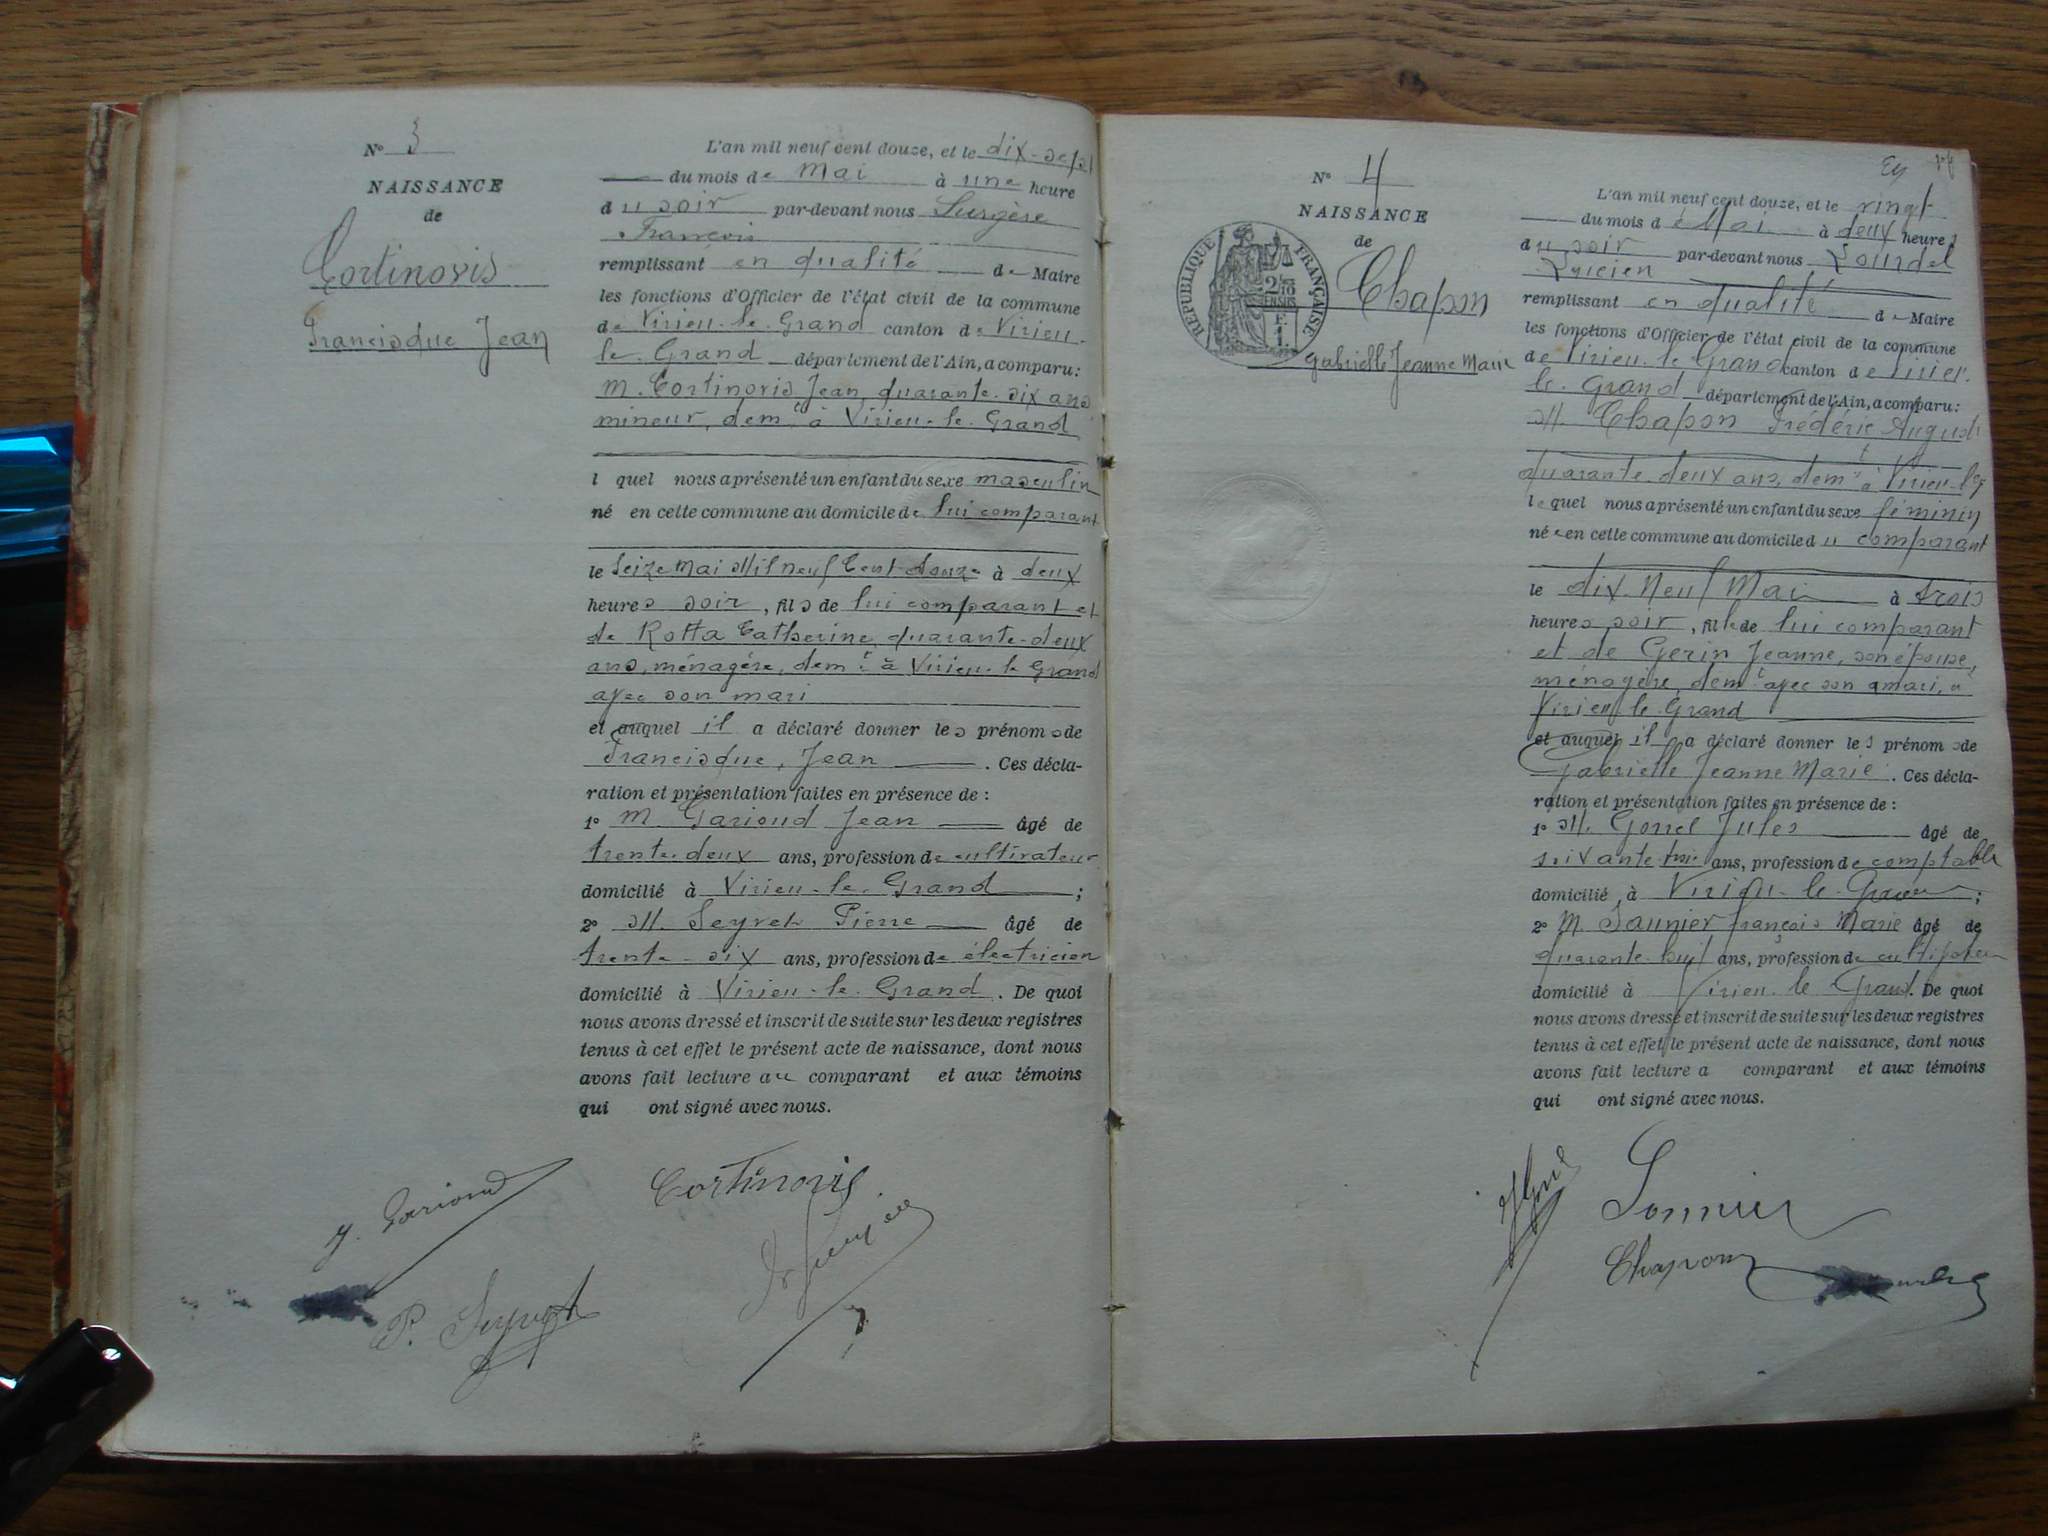 N° 3
NAISSANCE
de
Cortinovis
Francisque Jean
L'an mil neuf cent douze, et le dix-sept
du mois de Mai à une heure
du soir par-devant nous Surgère
François
remplissant en qualité de Maire
les fonctions d'Officier de l'état civil de la commune
de Virieu-le-Grand canton de Virieu-
le-Grand département de l'Ain, a comparu :
M. Cortinovis Jean, quarante-six ans
mineur, demt à Virieu-le-Grand
l quel nous a présenté un enfant du sexe masculin
né en cette commune au domicile de lui comparant
le Seize Mai Mil neuf Cent douze à deux
heures soir, fils de lui comparant et
de Rotta Catherine, quarante-deux
ans, ménagère, demt à Virieu-le-Grand
avec son mari
et auquel il a déclaré donner les prénoms de
Francisque, Jean . Ces décla-
ration et présentation faites en présence de :
1° M. Garioud Jean âgé de
trente-deux ans, profession de cultivateur
domicilié à Virieu-le-Grand ;
2° M. Seyvet Pierre âgé de
trente-six ans, profession de électricien
domicilié à Virieu-le-Grand. De quoi
nous avons dressé et inscrit de suite sur les deux registres
tenus à cet effet le présent acte de naissance, dont nous
avons fait lecture au comparant et aux témoins
qui ont signé avec nous.
J. Garioud
Cortinovis
P. Seyvet
N° 4
NAISSANCE
de
RÉPUBLIQUE FRANÇAISE
Chapon
Gabrielle Jeanne Marie
L'an mil neuf cent douze, et le vingt
du mois de Mai à deux heures
du soir par-devant nous Lourdel
Lucien
remplissant en qualité de Maire
les fonctions d'Officier de l'état civil de la commune
de Virieu-le-Grand canton de Virieu-
le-Grand département de l'Ain, a comparu :
M. Chapon Frédéric August
quarante-deux ans, demt à Virieu-le-G
lequel nous a présenté un enfant du sexe féminin
née en cette commune au domicile du comparant
le dix-Neuf Mai à trois
heures soir, fille de lui comparant
et de Gerin Jeanne, son épouse,
ménagère, demt avec son mari, à
Virieu-le-Grand
et auquel il a déclaré donner les prénoms de
Gabrielle Jeanne Marie. Ces décla-
ration et présentation faites en présence de :
1° M. Gorrel Jules âgé de
soixante trois ans, profession de comptable
domicilié à Virieu-le-Grand ;
2° M. Saunier François Marie âgé de
quarante-huit ans, profession de cultivateur
domicilié à Virieu-le-Grand. De quoi
nous avons dressé et inscrit de suite sur les deux registres
tenus à cet effet le présent acte de naissance, dont nous
avons fait lecture a comparant et aux témoins
qui ont signé avec nous.
Sonnier
Chapon